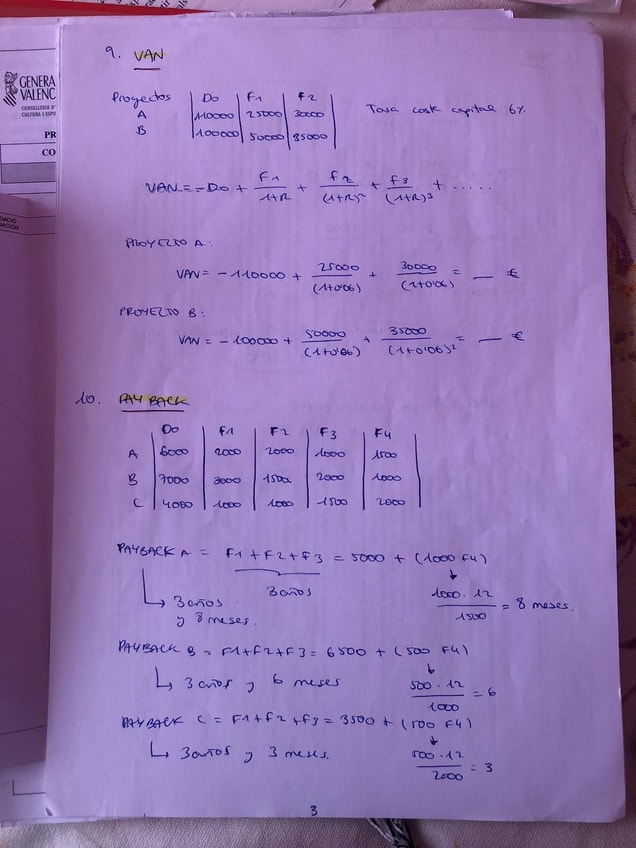 9. VAN
Proyectos | Do | F1 | F2 | Tasa coste capital 6%
A | 110000 | 25000 | 30000
B | 100000 | 50000 | 35000
VAN = -Do + F1/1+R + F2/(1+R)² + F3/(1+R)³ + .....
PROYECTO A:
VAN = -110000 + 25000/(1+0'06) + 30000/(1+0'06) = __ €
PROYECTO B:
VAN = -100000 + 50000/(1+0'06) + 35000/(1+0'06)² = __ €
10. PAYBACK
Do | F1 | F2 | F3 | F4
A | 6000 | 2000 | 2000 | 1000 | 1500
B | 7000 | 3000 | 1500 | 2000 | 1000
C | 4000 | 1000 | 1000 | 1500 | 2000
PAYBACK A = F1+F2+F3 = 5000 + (1000 F4)
3 años
1000·12/1500 = 8 meses.
3 años
y 8 meses.
PAYBACK B = F1+F2+F3 = 6500 + (500 F4)
3 años y 6 meses
500·12/1000 = 6
PAYBACK C = F1+F2+F3 = 3500 + (500 F4)
3 años y 3 meses.
500·12/2000 = 3
3
GENERA
VALENC
CONSELLERIA D'
CULTURA I ESPO
PR
CO